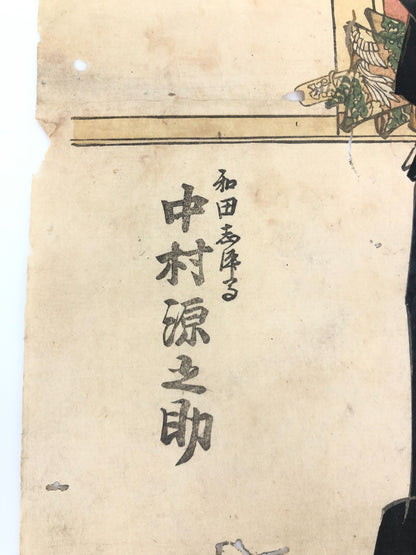 和田志津馬
中村源之助